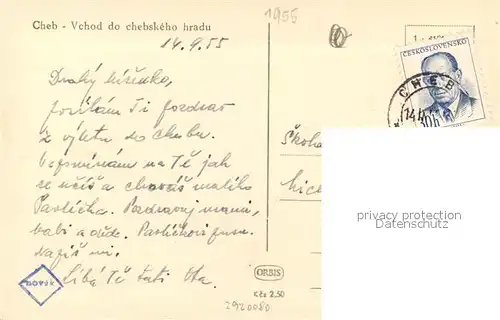 Cheb - Vchod do chebského hradu
1955
14.9.55
Drahý
posílám Ti pozdrav
z výletu do Chebu.
Vzpomínám na Tě jak
se učíš a chováš malého
Pavlíčka. Pozdravuj mami,
babi a děde. Pavlíčkovi pusu.
Napiš mi.
Líbá Tě táti Ota.
ČESKOSLOVENSKO
CHEB
Škoda
privacy protection
ORBIS
Kčs 2,50
2920080